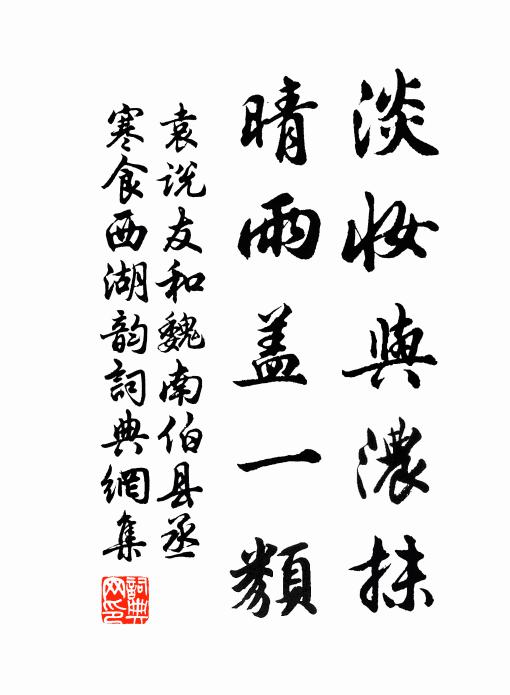 淡妝與濃抹
晴雨盖一類
袁说友和魏南伯县丞
寒食西湖韵詞典網集
詞典網印